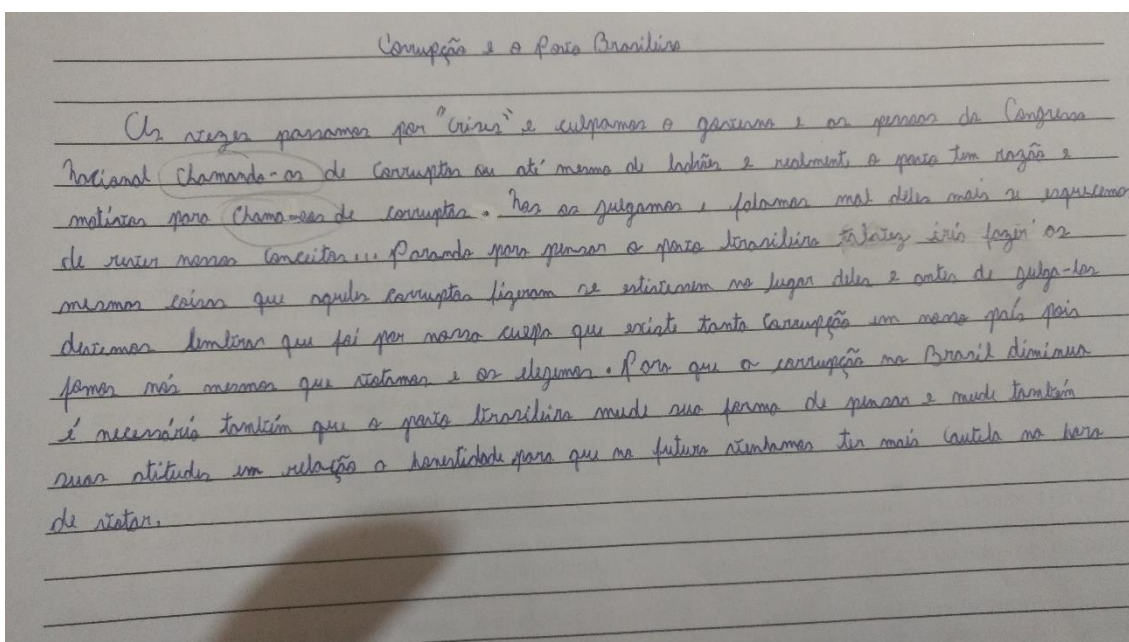 Corrupção e o Povo Brasileiro
As vezes passamos por "crises" e culpamos o governo e as pessoas do Congresso
Nacional chamando-os de corruptos ou até mesmo de ladrões e realment, o povo tem razão e
motivos para chama-los de corruptos. Nos os julgamos e falamos mal deles mais se esquecemos
de rever nossos conceitos... Parando para pensar o povo brasileiro talvez iria fazer as
mesmas coisas que aqueles corruptos fizeram se estivessem no lugar deles e antes de julga-los
devemos lembrar que foi por nossa culpa que existe tanta corrupção em nosso país pois
fomos nós mesmos que votamos e os elegemos. Para que a corrupção no Brasil diminua
é necessário também que o povo brasileiro mude sua forma de pensar e mude também
suas atitudes em relação a honestidade para que no futuro venhamos ter mais cautela na hora
de votar.